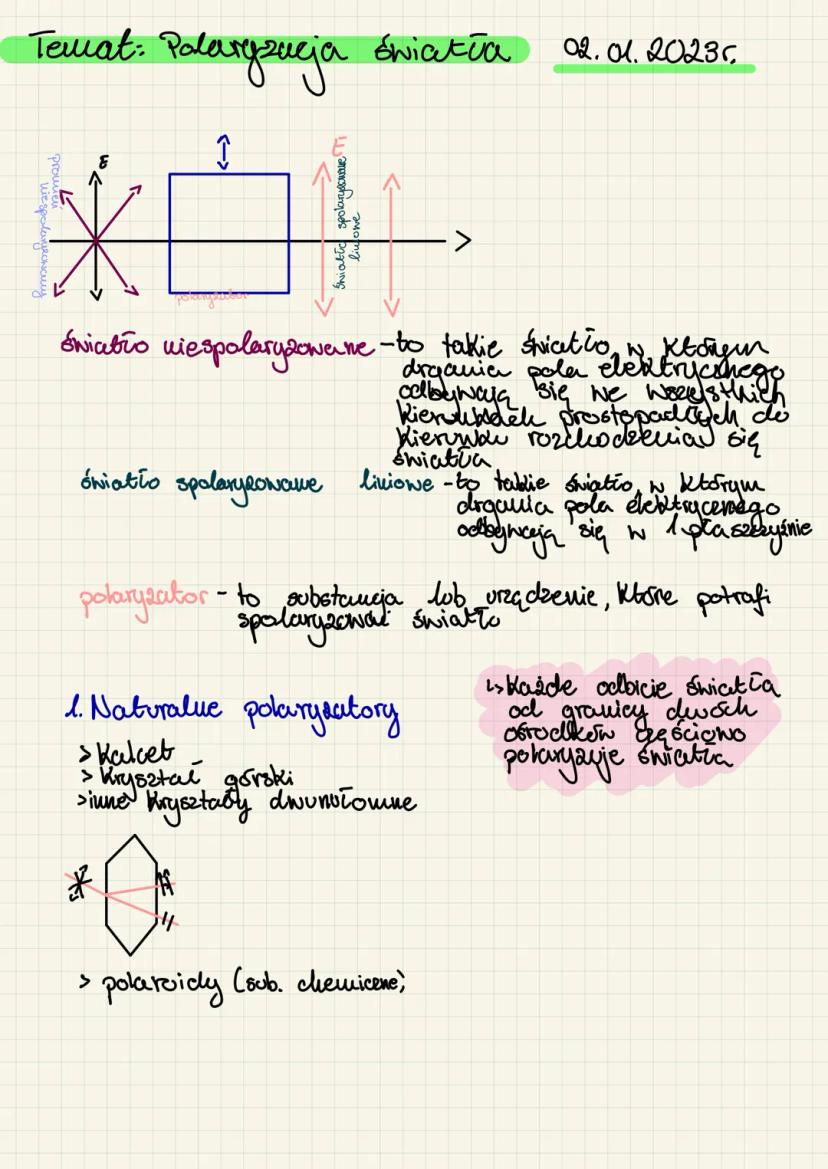 Temat: Polaryzacja światła 02.01.2023r.
E
promień
niespolaryzowany
polaryzator
E
światło spolaryzowane
liniowe
światło niespolaryzowane - to takie światło, w którym
drgania pola elektrycznego
odbywają się we wszystkich
kierunkach prostopadłych do
kierunku rozchodzenia się
światła
światło spolaryzowane liniowe - to takie światło, w którym
drgania pola elektrycznego
odbywają się w 1 płaszczyźnie
polaryzator - to substancja lub urządzenie, które potrafi
spolaryzować światło
1. Naturalne polaryzatory
> kalcet
> kryształ górski
> inne kryształy dwunułomne
↳ Każde odbicie światła
od granicy dwóch
ośrodków częściowo
polaryzuje światła
> polaroidy (sub. chemiczne)